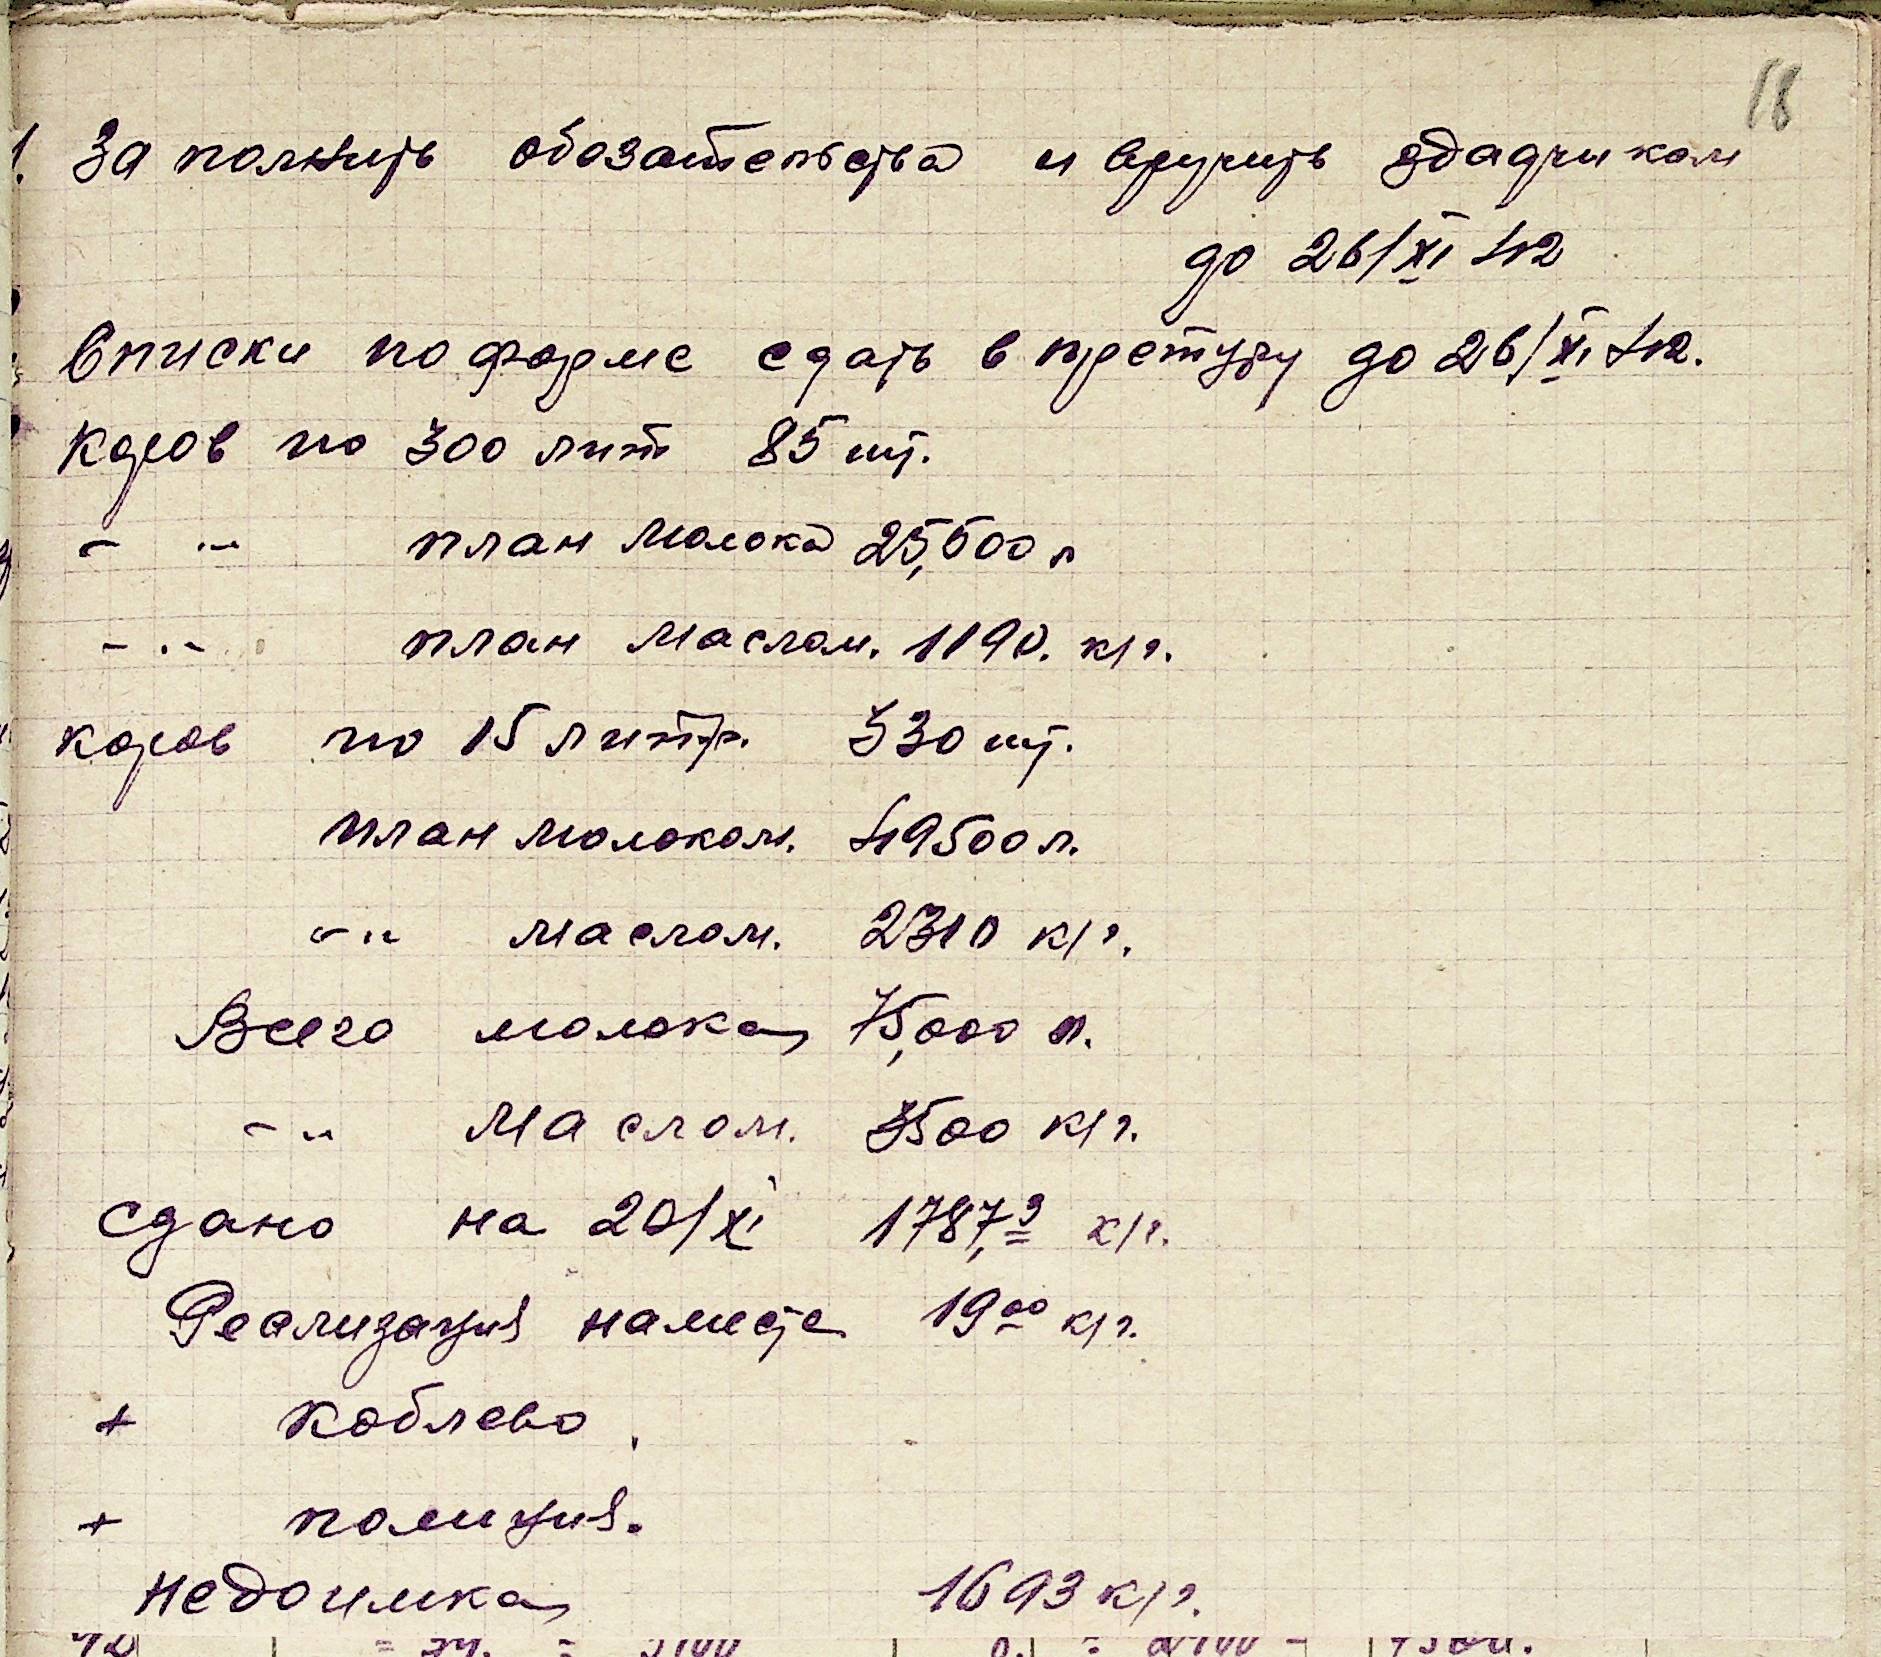 18
1. Заполнить обозательства и вручить здадчикам
до 26/XI 42
Списки по форме сдать в претуру до 26/XI 42.
Коров по 300 лит 85 шт.
- " - план молока 25,500 л
- " - план маслом. 1190. к/г.
коров по 15 литр. 330 шт.
план молоком. 49500 л.
- " - маслом. 2310 к/г.
Всего молока 75,000 л.
- " - маслом. 3500 к/г.
Сдано на 20/XI 1787,9 к/г.
Реализация наместе 19 00 к/г.
+ Коблево.
+ полиция.
Недоимка 1693 к/г.